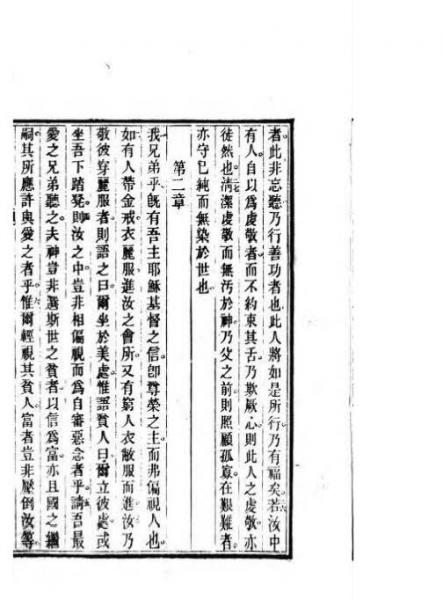 者此非忘聽乃行善功者也此人將如是所行乃有福矣若汝中
有人自以爲虔敬者而不約束其舌乃欺厥心則此人之虔敬亦
徒然也淸潔虔敬而無汚於神乃父之前則照顧孤寡在艱難者
亦守己純而無染於世也
第二章
我兄弟乎旣有吾主耶穌基督之信卽尊榮之主而弗偏視人也
如有人帶金戒衣麗服進汝之會所又有窮人衣敝服而進汝乃
敬彼穿麗服者則語之曰爾坐於美處惟語貧人曰爾立彼處或
坐吾下踏凳則汝之中豈非相偏視而爲自審惡念者乎請吾最
愛之兄弟聽之夫神豈非選斯世之貧者以信爲富亦且國之繼
嗣其所應許與愛之者乎惟爾輕視其貧人富者豈非壓倒汝等